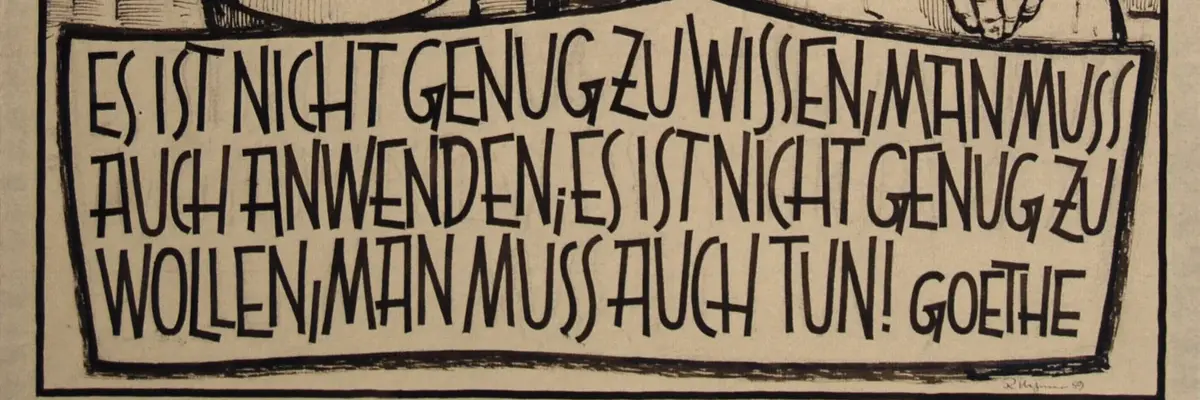 ES IST NICHT GENUG ZU WISSEN, MAN MUSS
AUCH ANWENDEN; ES IST NICHT GENUG ZU
WOLLEN, MAN MUSS AUCH TUN! GOETHE